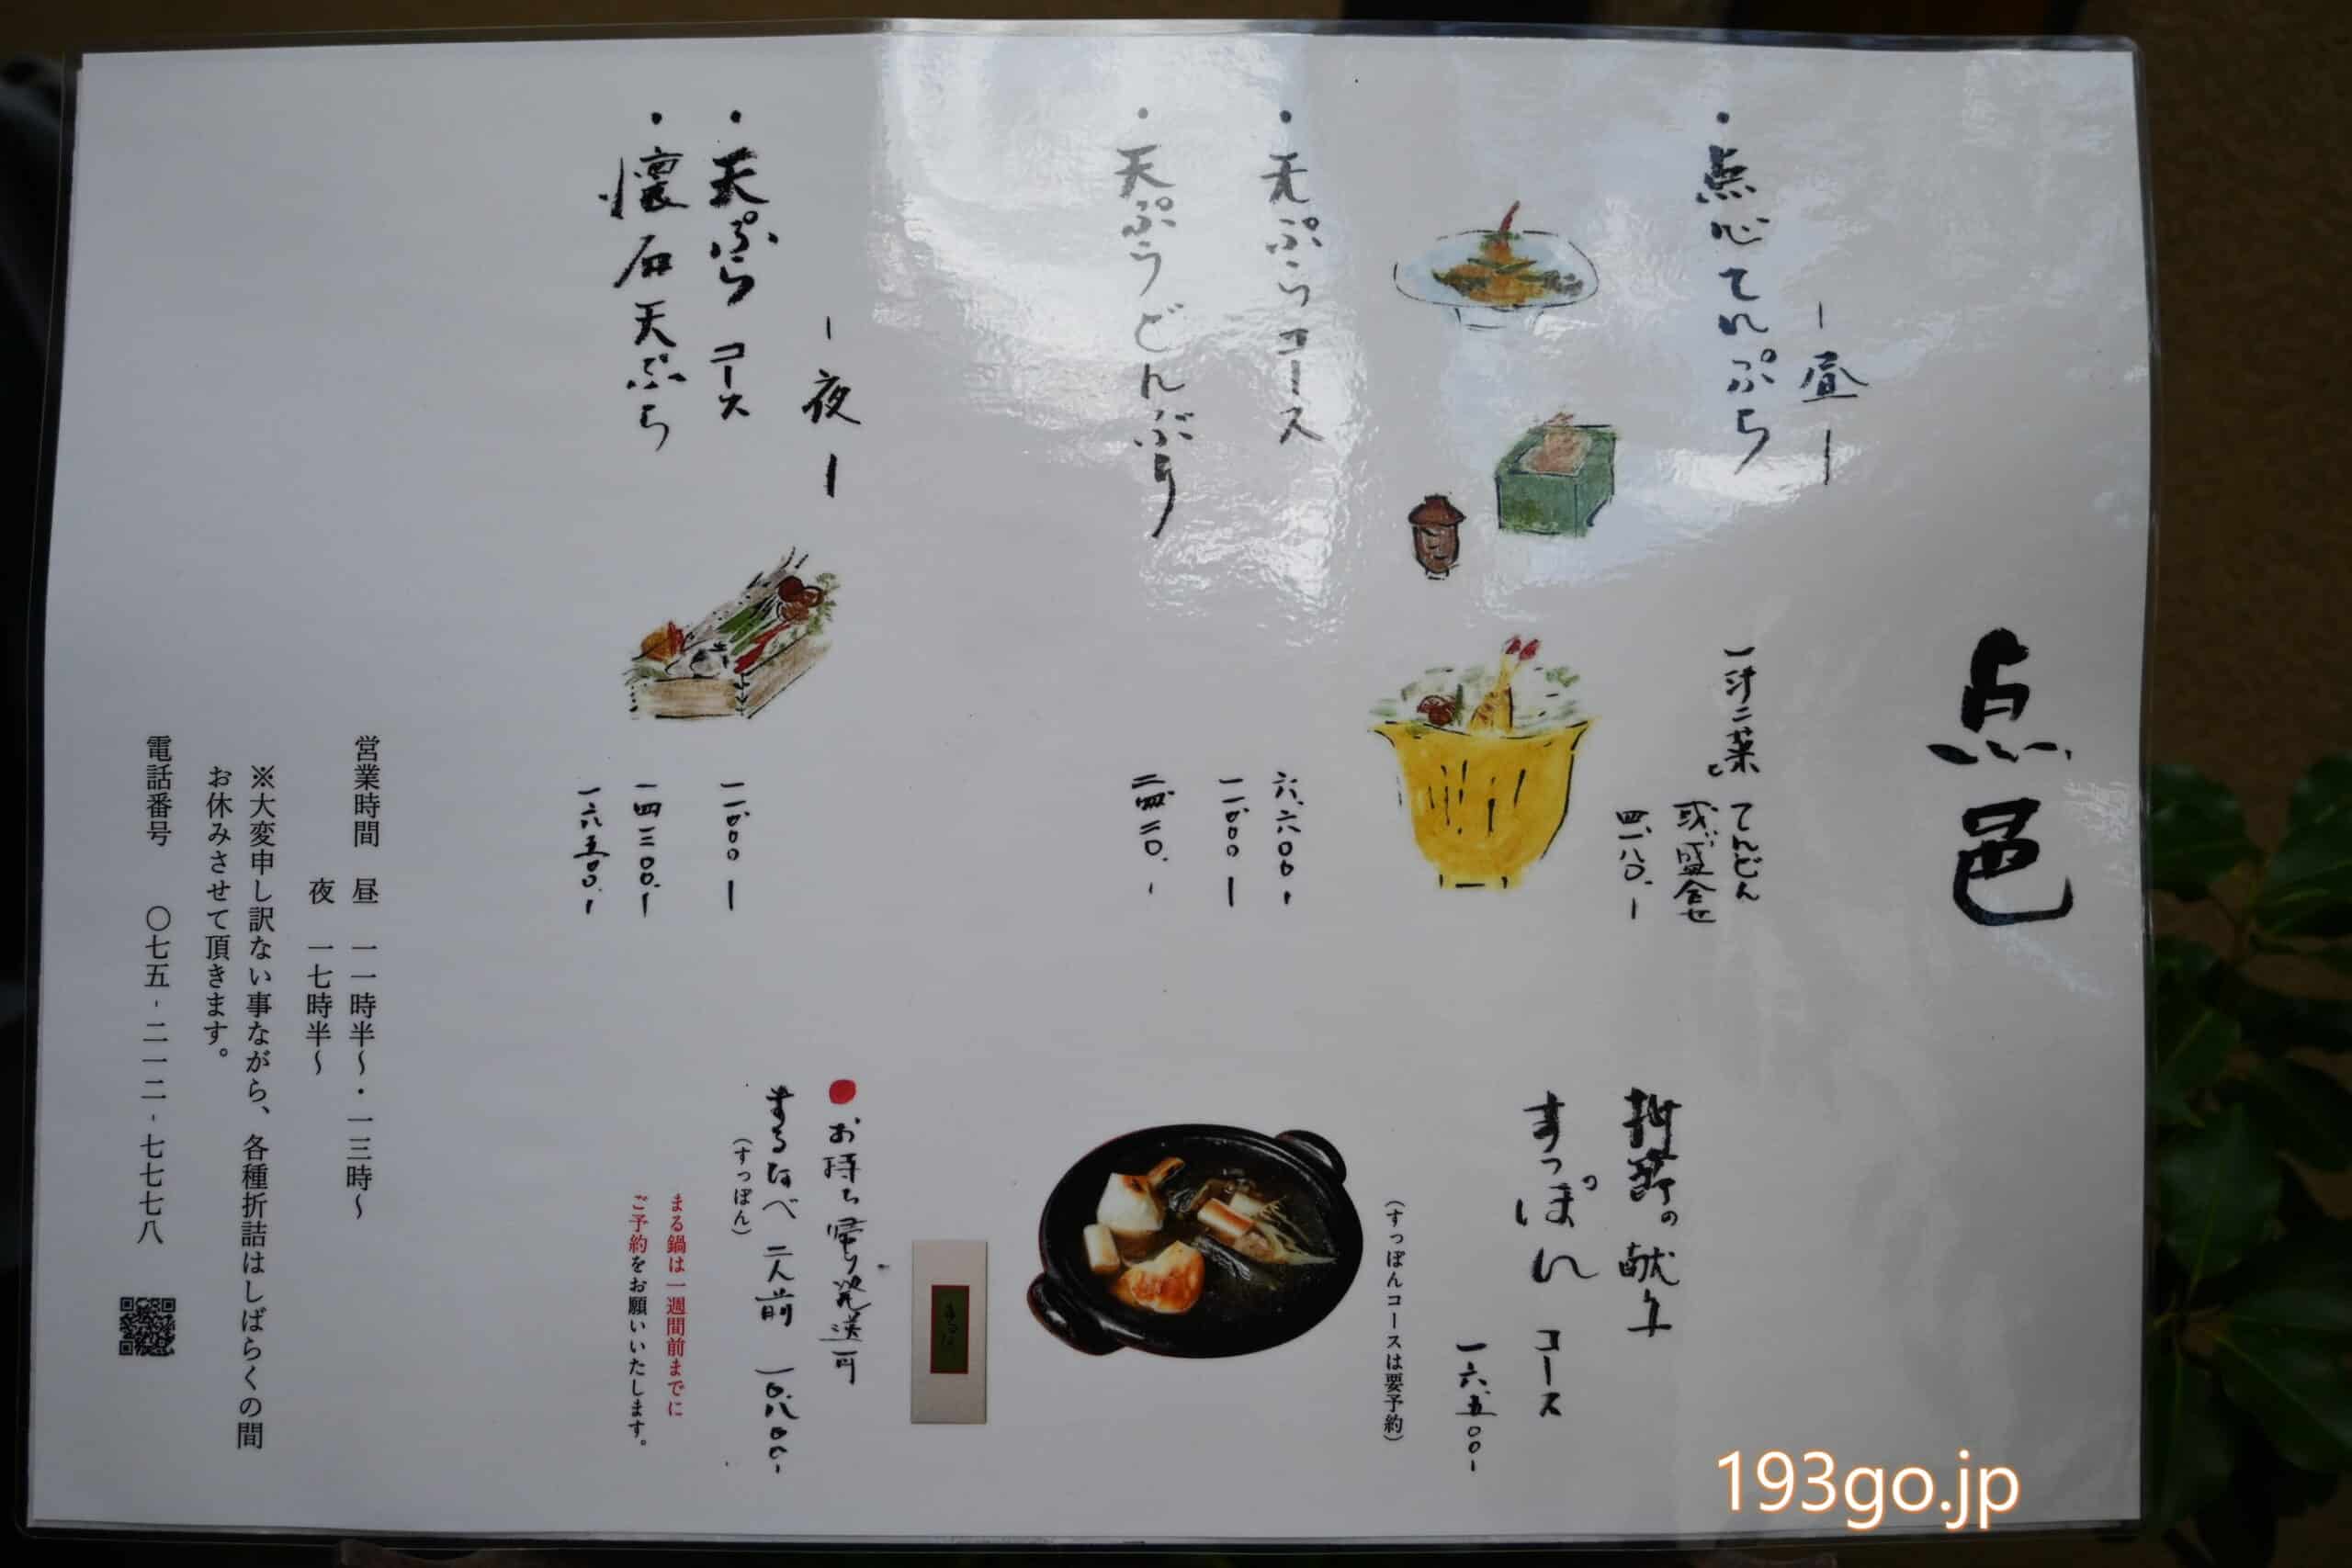 点邑
ー昼ー
・点心てんぷら
一汁二菜と
てんどん
或ハ盛合せ
四、一八〇.ー
・天ぷらコース
六、六〇〇ー
一一、〇〇〇ー
・天ぷらどんぶり
二四二〇.ー
ー夜ー
・天ぷらコース
一一、〇〇〇ー
・懐石天ぷら
一四三〇〇.ー
一六五〇〇.ー
の献上
すっぽんコース
一六、五〇〇ー
(すっぽんコースは要予約)
●お持ち帰り・発送可
まるなべ 二人前 一〇、八〇〇ー
(すっぽん)
まる鍋は一週間前までに
ご予約をお願いいたします。
営業時間 昼 一一時半〜・一三時〜
夜 一七時半〜
※大変申し訳ない事ながら、各種折詰はしばらくの間
お休みさせて頂きます。
電話番号 〇七五-二一二-七七七八
193go.jp